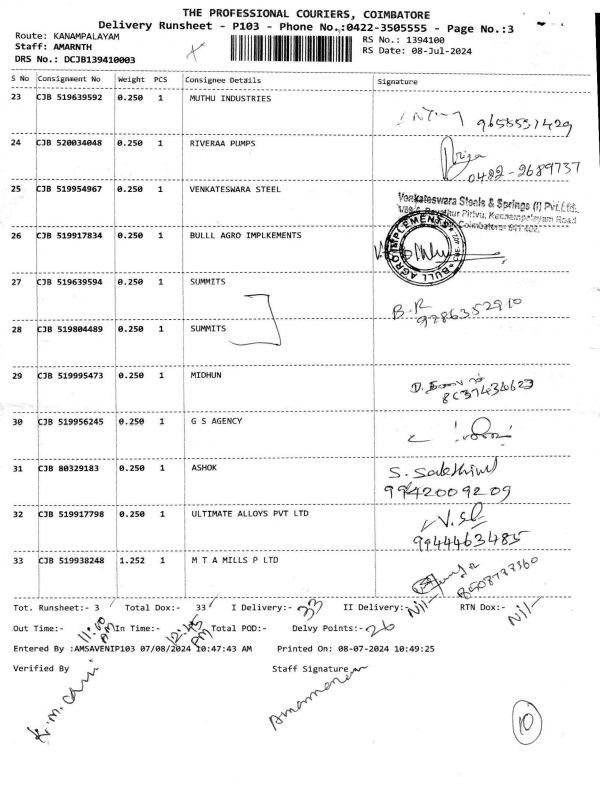 THE PROFESSIONAL COURIERS, COIMBATORE
Delivery Runsheet - P103 - Phone No.:0422-3505555 - Page No.:3
Route: KANAMPALAYAM
Staff: AMARNTH
DRS No.: DCJB139410003
RS No.: 1394100
RS Date: 08-Jul-2024
S No Consignment No Weight PCS Consignee Details Signature
23 CJB 519639592 0.250 1 MUTHU INDUSTRIES
9655551429
24 CJB 520034048 0.250 1 RIVERAA PUMPS
Priya
0422-2689737
25 CJB 519954967 0.250 1 VENKATESWARA STEEL
Venkateswara Steels & Springs (I) Pvt.Ltd.,
Coimbatore
26 CJB 519917834 0.250 1 BULLL AGRO IMPLKEMENTS
BULL AGRO IMPLEMENTS
27 CJB 519639594 0.250 1 SUMMITS
B.R
9786352910
28 CJB 519804489 0.250 1 SUMMITS
29 CJB 519995473 0.250 1 MIDHUN
30 CJB 519956245 0.250 1 G S AGENCY
31 CJB 80329183 0.250 1 ASHOK
S. Sakthivel
9942009209
32 CJB 519917798 0.250 1 ULTIMATE ALLOYS PVT LTD
9944463485
33 CJB 519938248 1.252 1 M T A MILLS P LTD
Tot. Runsheet:- 3 Total Dox:- 33 I Delivery:- 33 II Delivery:- Nil- RTN Dox:- Nil-
Out Time:- 11:00 AM In Time:- 12:45 AM Total POD:- Delvy Points:- 26
Entered By :AMSAVENIP103 07/08/2024 10:47:43 AM Printed On: 08-07-2024 10:49:25
Verified By Staff Signature
10